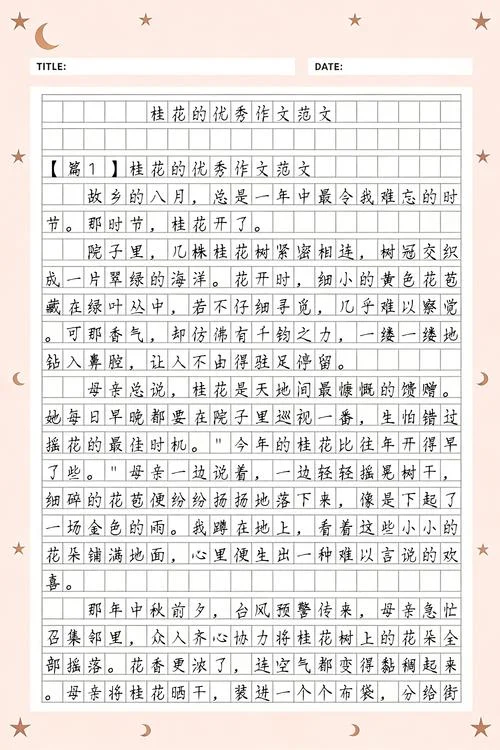 TITLE:
DATE:
桂花的优秀作文范文
【篇1】桂花的优秀作文范文
故乡的八月，总是一年中最令我难忘的时
节。那时节，桂花开了。
院子里，几株桂花树紧密相连，树冠交织
成一片翠绿的海洋。花开时，细小的黄色花苞
藏在绿叶丛中，若不仔细寻觅，几乎难以察觉
。可那香气，却仿佛有千钧之力，一缕一缕地
钻入鼻腔，让人不由得驻足停留。
母亲总说，桂花是天地间最慷慨的馈赠。
她每日早晚都要在院子里巡视一番，生怕错过
摇花的最佳时机。"今年的桂花比往年开得早
了些。"母亲一边说着，一边轻轻摇晃树干，
细碎的花苞便纷纷扬扬地落下来，像是下起了
一场金色的雨。我蹲在地上，看着这些小小的
花朵铺满地面，心里便生出一种难以言说的欢
喜。
那年中秋前夕，台风预警传来，母亲急忙
召集邻里，众人齐心协力将桂花树上的花朵全
部摇落。花香更浓了，连空气都变得黏稠起来
。母亲将桂花晒干，装进一个个布袋，分给街